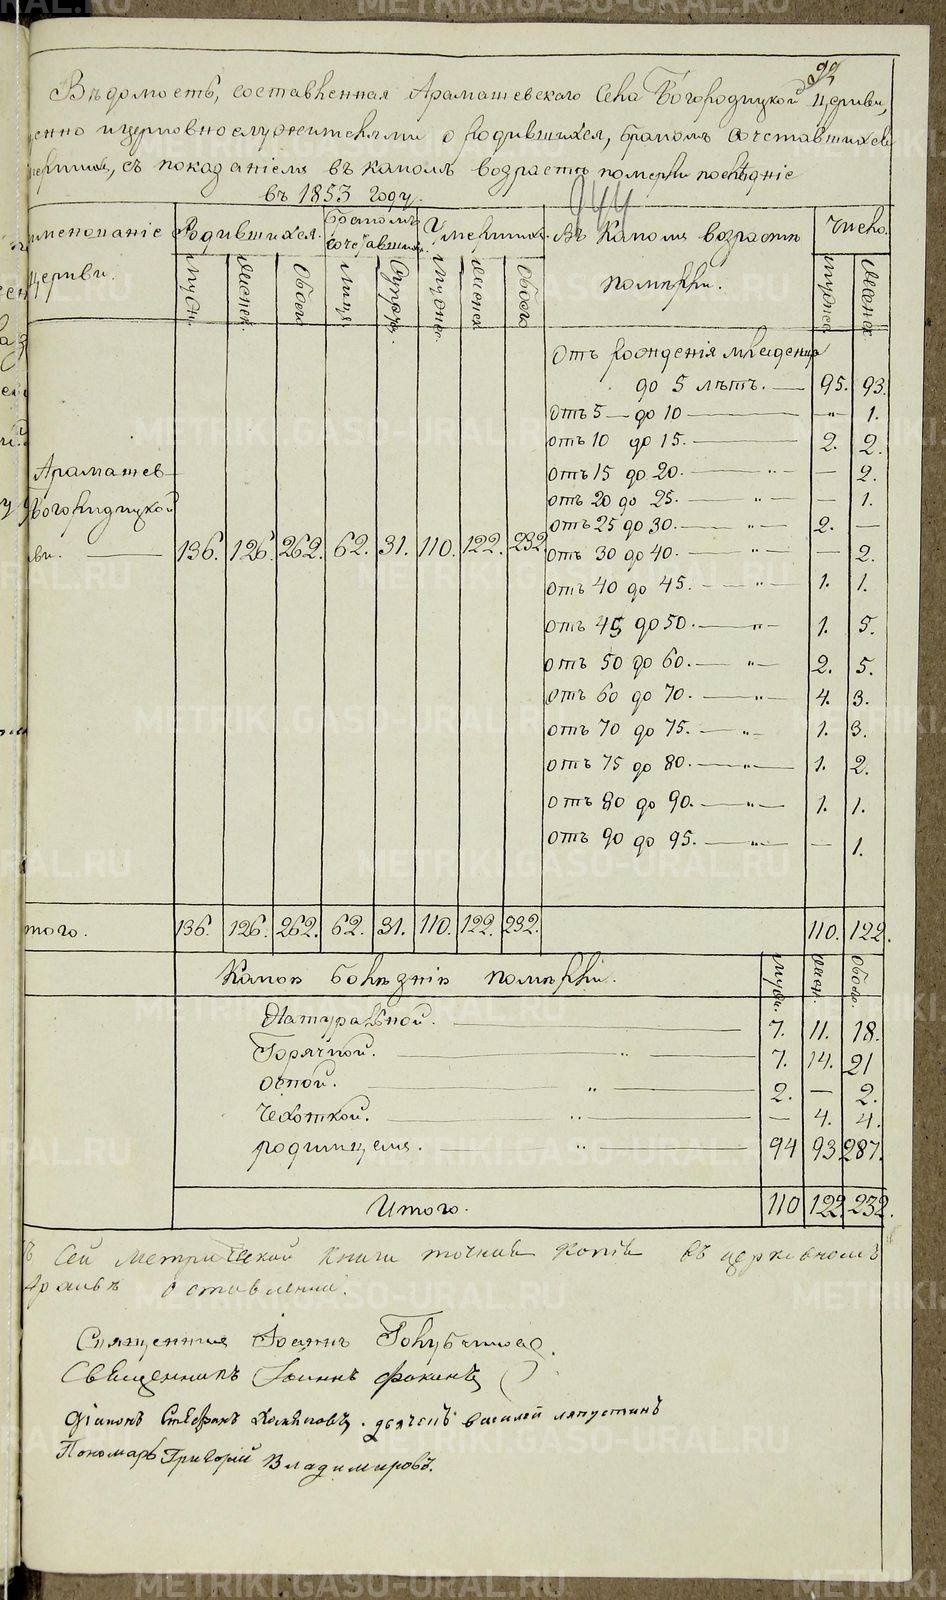 99
Вѣдомость, составленная Арамашевскаго Села Богородицкой Церкви,
енно и церковнослужителями о родившихся, бракомъ сочетавшихся
мершихъ, съ показаніемъ въ какомъ возрастѣ померли послѣдніе
въ 1853 году.
944
именованіе Родившихся. бракомъ сочетавших. Умершихъ. въ какомъ возрастѣ Число.
Церкви. мужс. женск. Обоего лица супруж. мужес. женск. Обоего померли. мужес. женск.
отъ рожденія младенцы
до 5 лѣтъ. — 95. 93.
отъ 5 — до 10 — „ — 1.
отъ 10 до 15. — 2. 2.
отъ 15 до 20. — „ — — 2.
отъ 20 до 25. — „ — — 1.
отъ 25 до 30. — „ — 2. —
отъ 30 до 40. — „ — — 2.
отъ 40 до 45. — „ — 1. 1.
отъ 45 до 50. — „ — 1. 5.
отъ 50 до 60. — „ — 2. 5.
отъ 60 до 70. — „ — 4. 3.
отъ 70 до 75. — „ — 1. 3.
отъ 75 до 80. — „ — 1. 2.
отъ 80 до 90. — „ — 1. 1.
отъ 90 до 95. — „ — — 1.
Арамашев
Богородицкой
кви. — 136. 126. 262. 62. 31. 110. 122. 232.
того. 136. 126. 262. 62. 31. 110. 122. 232. 110. 122.
Какою болѣзнію померли. мужс. женс. обоего.
Натуральной. — 7. 11. 18.
Горячкой. — „ — 7. 14. 21
оспой. — „ — 2. — 2.
Чехоткой. — „ — — 4. 4.
родимцемъ. — „ — 94 93. 287.
Итого. 110 122. 232.
ъ сей метрической книги точная копія въ церковномъ
Архивѣ оставлена.
Священникъ Іоаннъ
Священникъ Іоаннъ Фокинъ
Діаконъ Стефанъ дьячекъ василей ляпустинъ
Пономарь Григорій Владимировъ.
METRIKI.GASO-URAL.RU